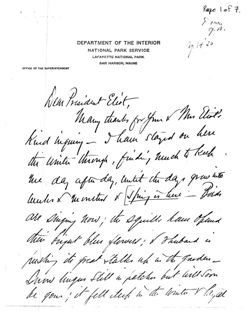 Page 1 of 7.
DEPARTMENT OF THE INTERIOR
NATIONAL PARK SERVICE
LAFAYETTE NATIONAL PARK
BAR HARBOR, MAINE
OFFICE OF THE SUPERINTENDENT
Dear President Eliot,
Many thanks for your & Mrs Eliot's
kind inquiry — I have stayed on here
the winter through, finding much to keep
me day after day, until the days grew into
weeks & months & Spring is here — Birds
are singing now; the squills have opened
their bright blue flowers; & rhubarb is
pushing its great stalks up in the garden —
Snow lingers still in patches but will soon
be gone; it fell deep in the winter &